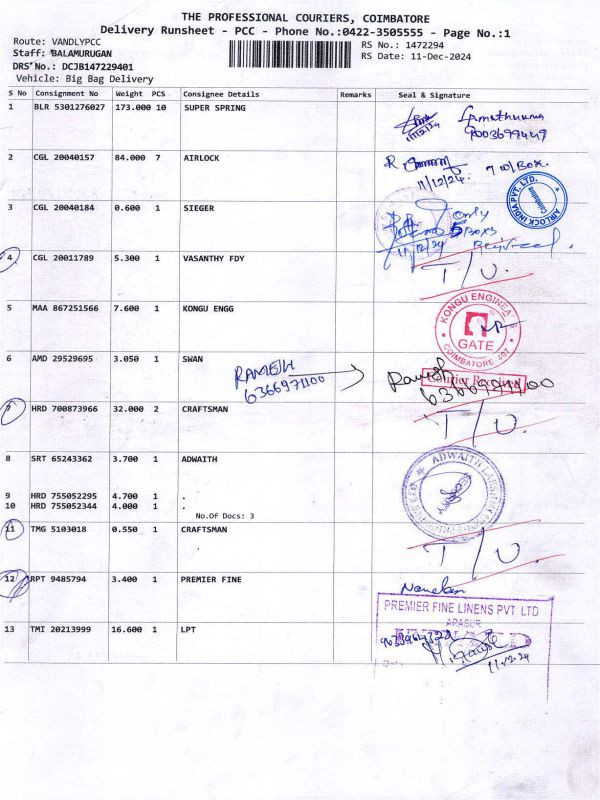 THE PROFESSIONAL COURIERS, COIMBATORE
Delivery Runsheet - PCC - Phone No.:0422-3505555 - Page No.:1
Route: VANDLYPCC
RS No.: 1472294
Staff: BALAMURUGAN
RS Date: 11-Dec-2024
DRS No.: DCJB147229401
Vehicle: Big Bag Delivery
S No Consignment No Weight PCS Consignee Details Remarks Seal & Signature
1 BLR 5301276027 173.000 10 SUPER SPRING
11/12/24
9003699449
2 CGL 20040157 84.000 7 AIRLOCK
R
7 W/BOX.
11/12/24.
AIRLOCK INDIA PVT. LTD.
Coimbatore
3 CGL 20040184 0.600 1 SIEGER
only
5 Boxs
11/12/24 Received.
4 CGL 20011789 5.300 1 VASANTHY FDY
T/U.
5 MAA 867251566 7.600 1 KONGU ENGG
KONGU ENGINEERS
GATE
COIMBATORE
6 AMD 29529695 3.050 1 SWAN
RAMESH
6366971100
Ramesh
6366971100
7 HRD 700873966 32.000 2 CRAFTSMAN
T/U.
8 SRT 65243362 3.700 1 ADWAITH
ADWAITH
9 HRD 755052295 4.700 1 .
10 HRD 755052344 4.000 1 .
No.Of Docs: 3
11 TMG 5103018 0.550 1 CRAFTSMAN
T/U.
12 RPT 9485794 3.400 1 PREMIER FINE
PREMIER FINE LINENS PVT. LTD
ARASUR
13 TMI 20213999 16.600 1 LPT
11.12.24